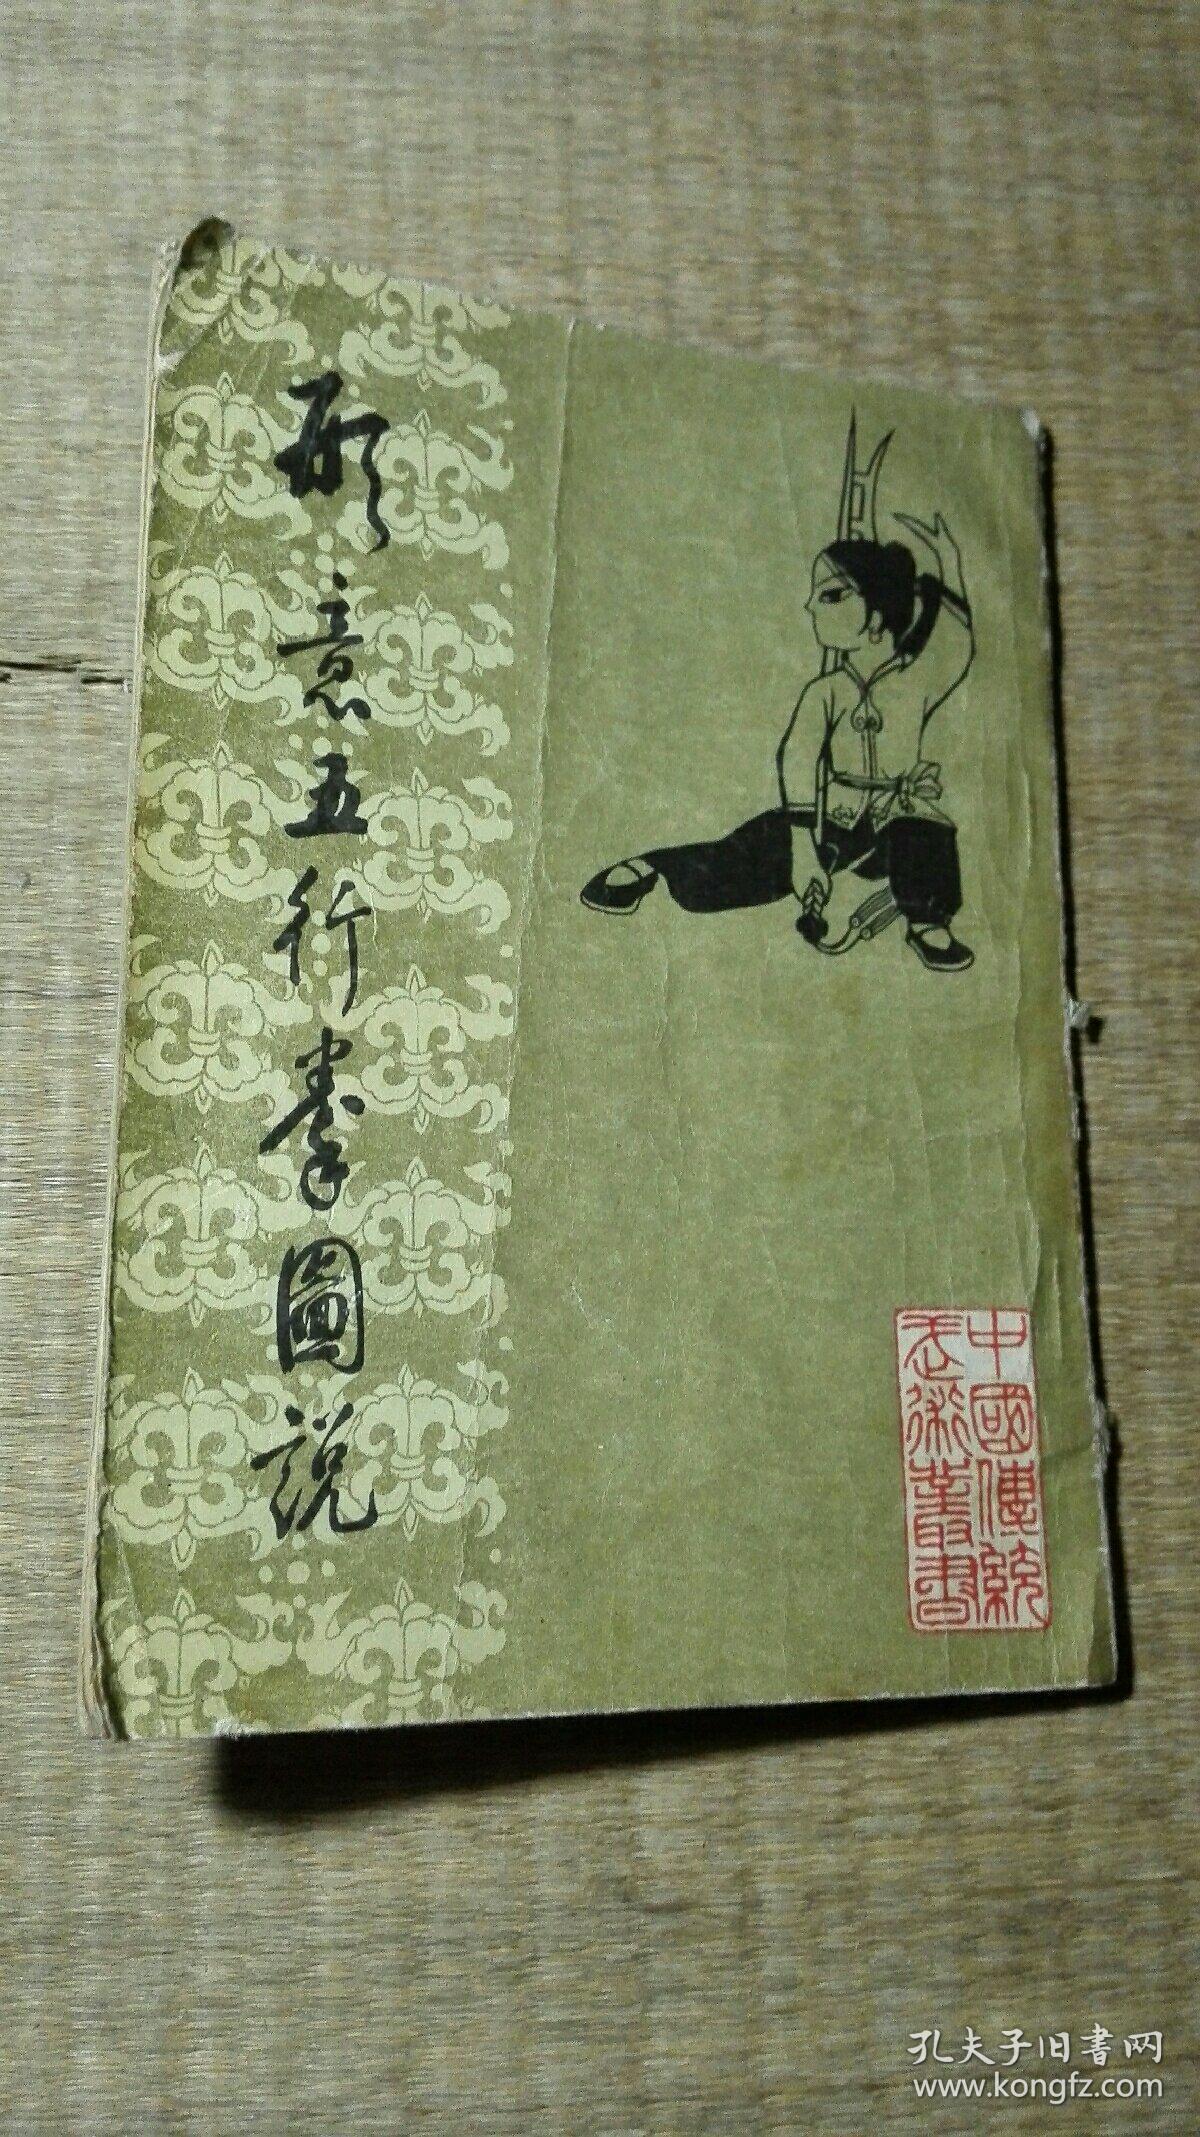 形意五行拳圖説
中國傳統
武術叢書
孔夫子旧書网
www.kongfz.com